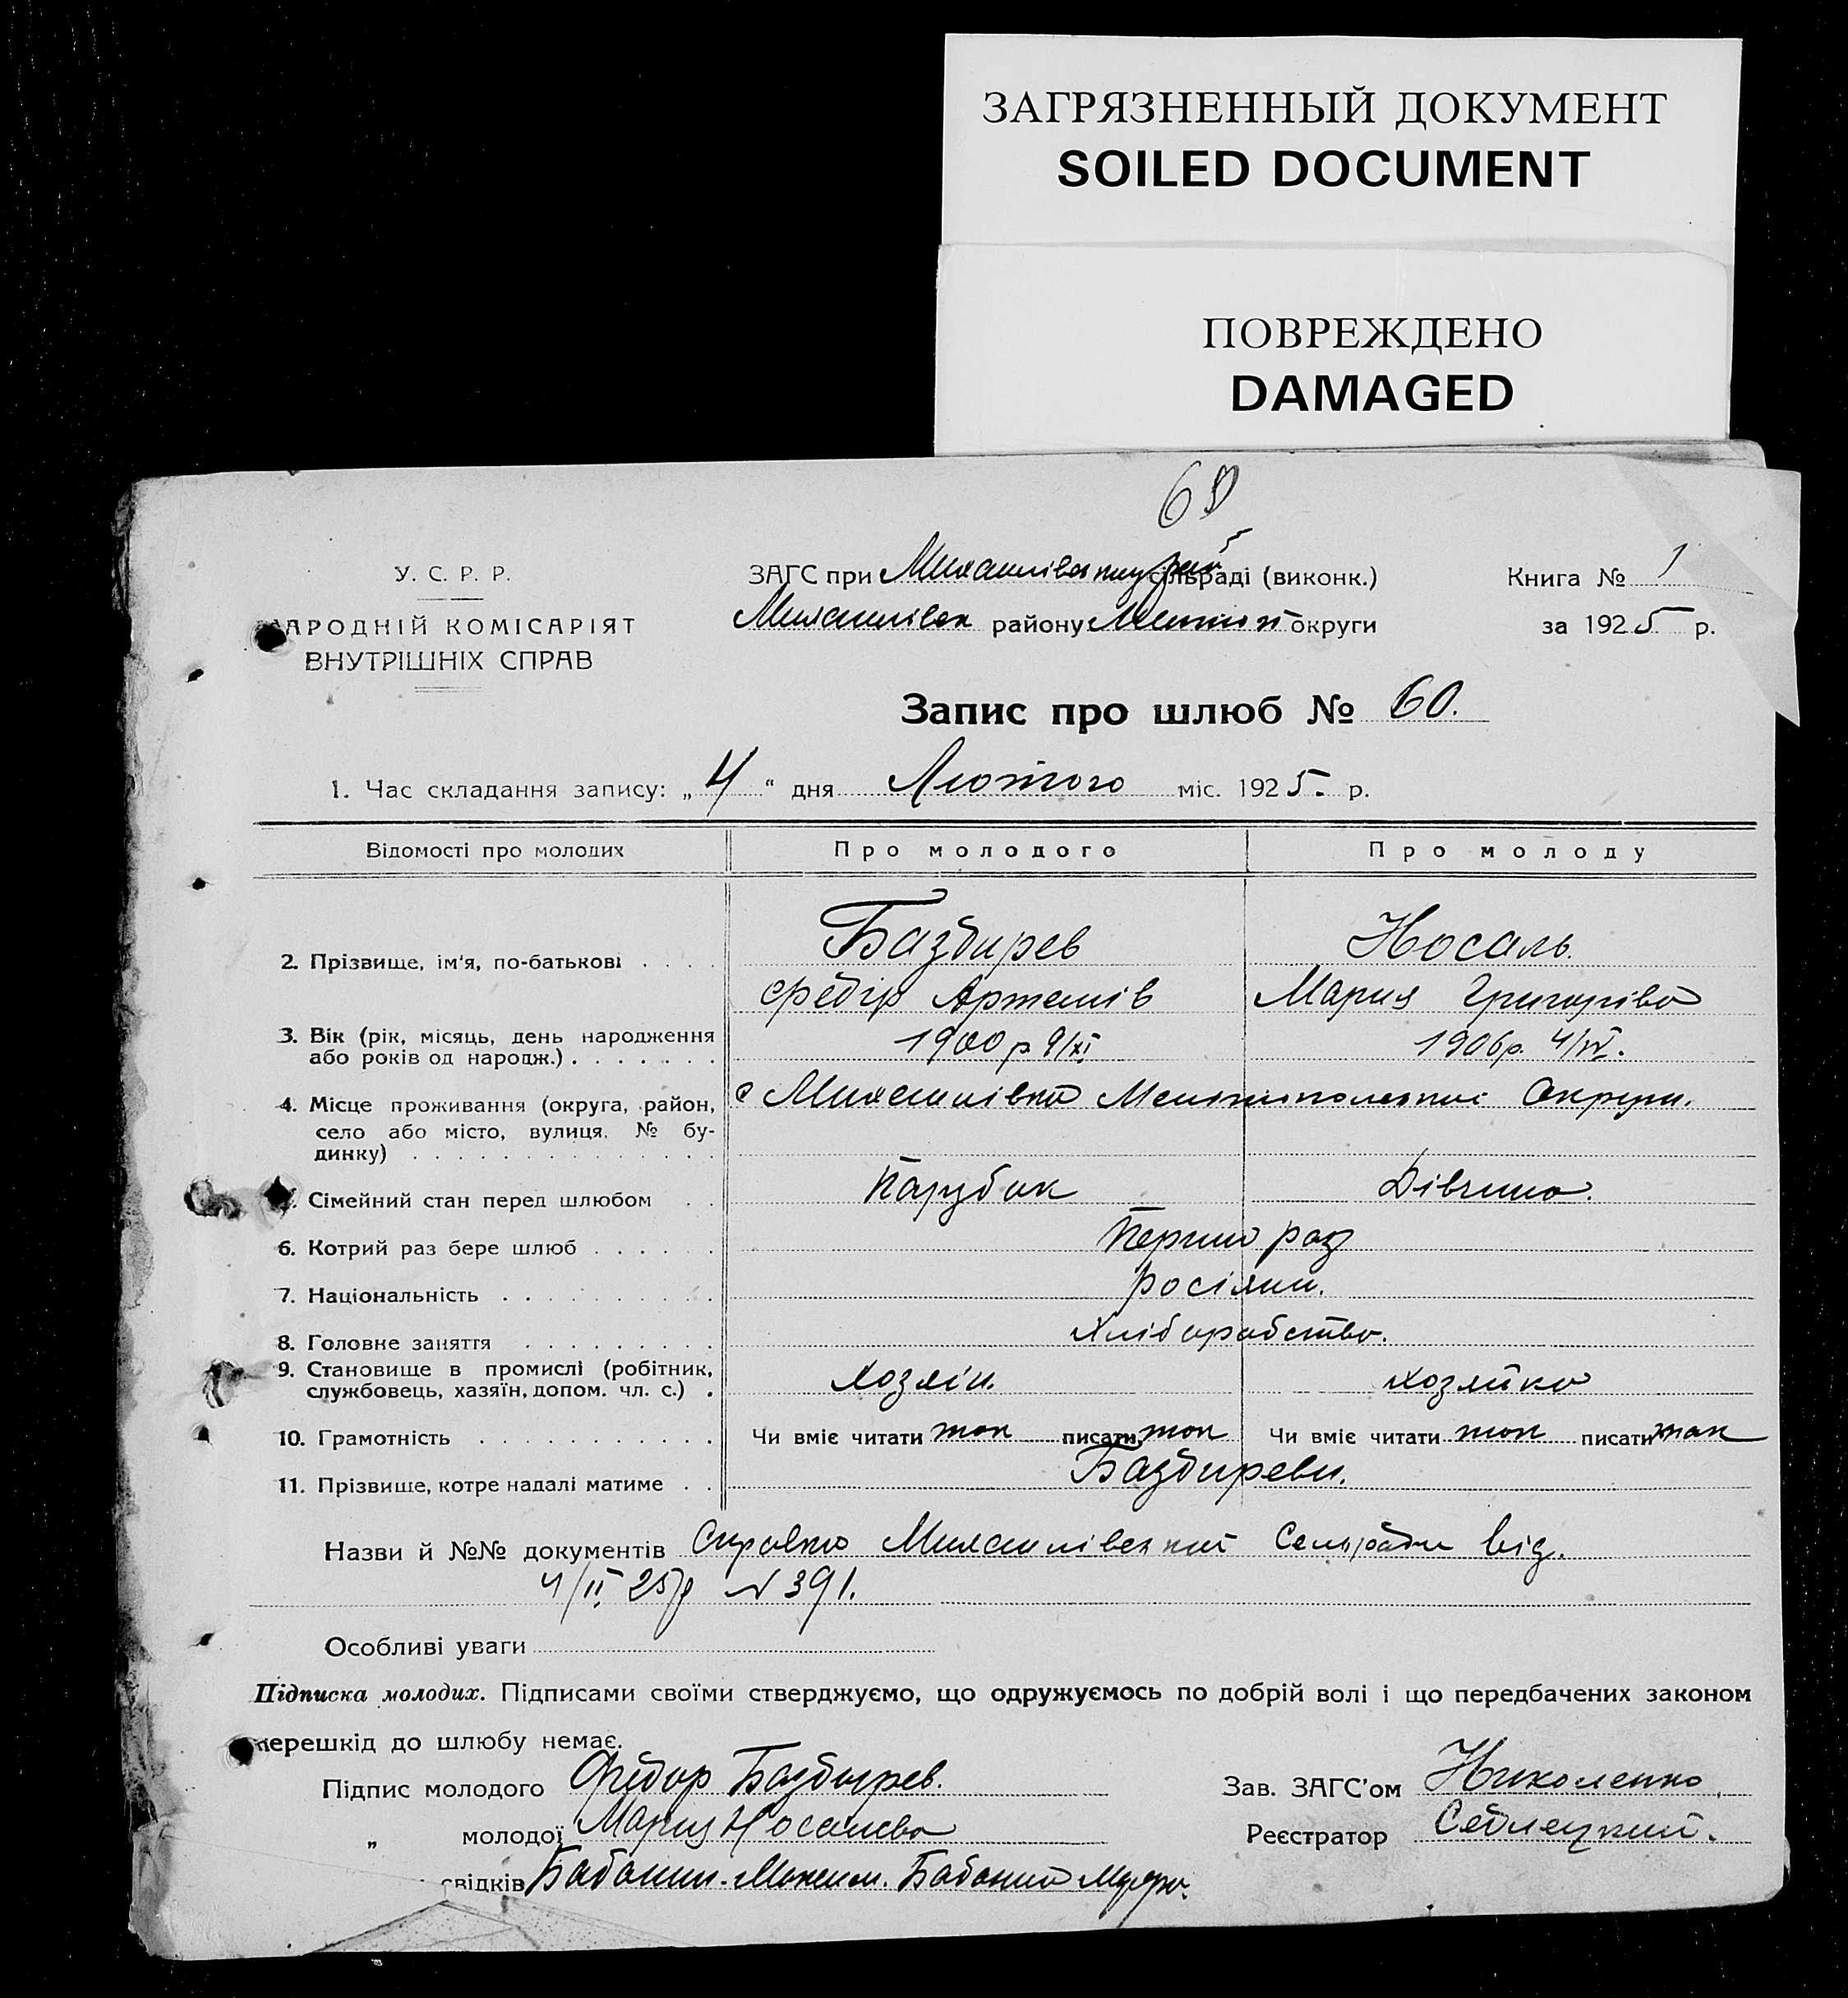 ЗАГРЯЗНЕННЫЙ ДОКУМЕНТ
SOILED DOCUMENT
ПОВРЕЖДЕНО
DAMAGED
У. С. Р. Р.
АРОДНІЙ КОМІСАРІЯТ
ВНУТРІШНІХ СПРАВ
ЗАГС при сільраді (виконк.)
району округи
Книга № 1
за 1925 р.
Запис про шлюб № 60.
1. Час складання запису: „4“ дня Лютого міс. 1925. р.
Відомості про молодих Про молодого Про молоду
2. Прізвище, ім'я, по-батькові . . . . Базбирев Носаль.
Федір Артемів Мария Григоріва
3. Вік (рік, місяць, день народження
або років од народж.) . . . . . . . 1900 р 9/XI 1906р. 4/IV.
4. Місце проживання (округа, район, с Михайлівка Мелітопольскої Округи.
село або місто, вулиця, № бу-
динку) . . . . . . . . . . . . . .
Сімейний стан перед шлюбом . . Парубок Дівчина.
6. Котрий раз бере шлюб . . . . . . Перший раз
7. Національність . . . . . . . . . . Росіяни.
8. Головне заняття . . . . . . . . . Хліборобство.
9. Становище в промислі (робітник,
службовець, хазяїн, допом. чл. с.) . Хозяін. хозяйка
10. Грамотність . . . . . . . . . . . Чи вміє читати так писати так Чи вміє читати так писати так
11. Прізвище, котре надалі матиме . . Базбиреви.
Назви й №№ документів Справка Михайлівскої Сельради від.
4/II 25р N 391.
Особливі уваги
Підписка молодих. Підписами своїми стверджуємо, що одружуємось по добрій волі і що передбачених законом
перешкід до шлюбу немає.
Підпис молодого Федор Базбирев. Зав. ЗАГС'ом Николенко
„ молодої Мария Носалева Реєстратор Седлецкий.
свідків Бабанин. Максим. Бабанин